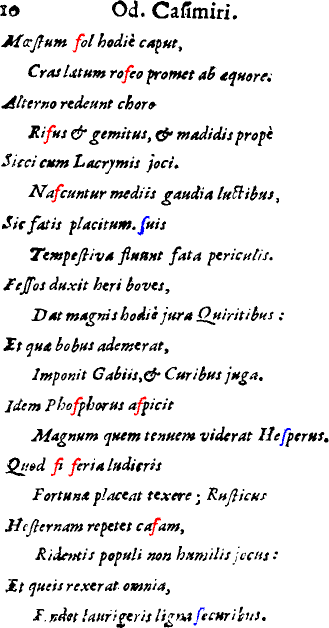 10 Od. Casimiri.
Mœſtum ſol hodiè caput,
Cras lætum roſeo promet ab æquore.
Alterno redeunt choro
Riſus & gemitus, & madidis propè
Sicci cum Lacrymis joci.
Naſcuntur mediis gaudia luctibus,
Sic fatis placitum. ſuis
Tempeſtiva fluunt fata periculis.
Feſſos duxit heri boves,
Dat magnis hodiè jura Quiritibus:
Et quæ bobus ademerat,
Imponit Gabiis, & Curibus juga.
Idem Phoſphorus aſpicit
Magnum quem tenuem viderat Heſperus.
Quod ſi ſeria ludicris
Fortunæ placeat texere; Ruſticus
Heſternam repetet caſam,
Ridentis populi non humilis jocus:
Et queis rexerat omnia,
Findet laurigeris ligna ſecuribus.